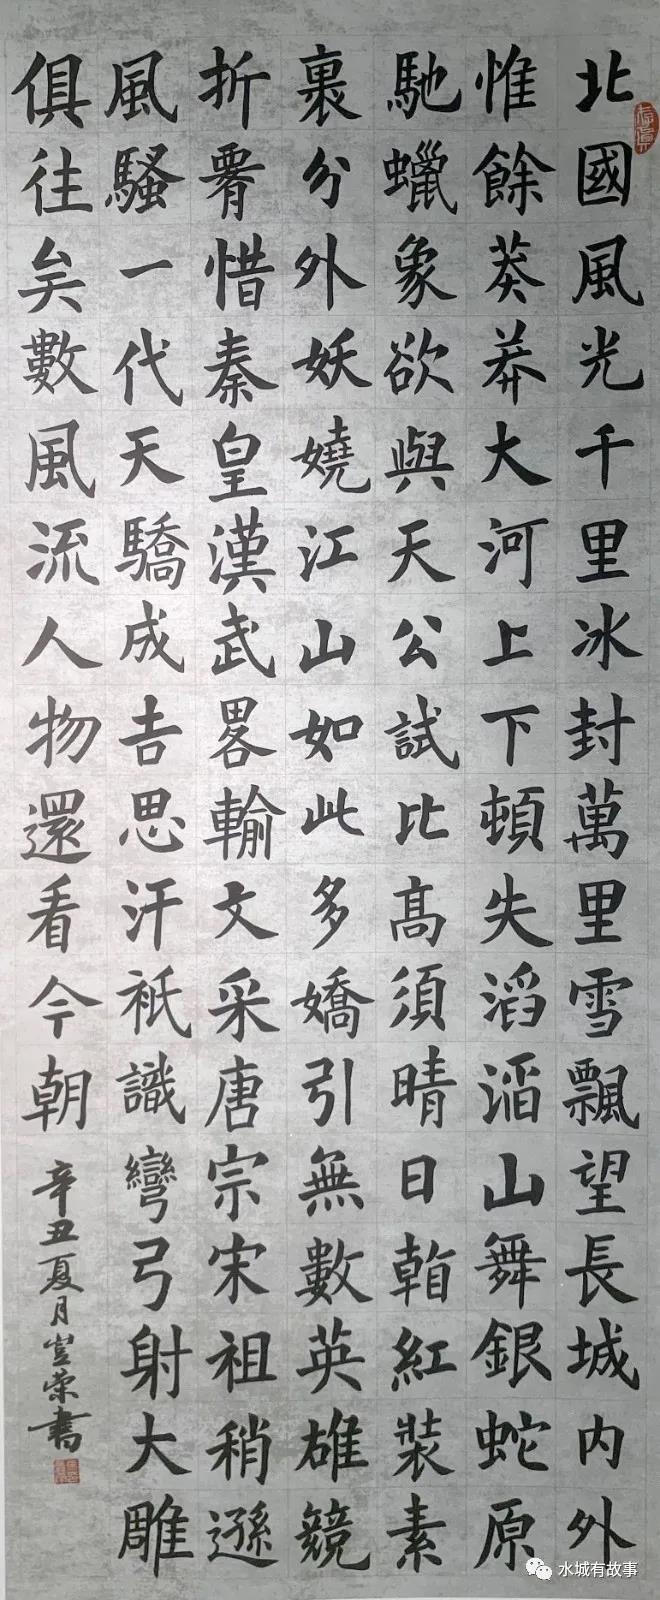 北國風光千里冰封萬里雪飄望長城内外
惟餘莽莽大河上下頓失滔滔山舞銀蛇原
馳蠟象欲與天公試比髙須晴日看紅裝素
裹分外妖嬈江山如此多嬌引無數英雄競
折腰惜秦皇漢武畧輸文采唐宗宋祖稍遜
風騷一代天驕成吉思汗衹識彎弓射大雕
俱往矣數風流人物還看今朝
辛丑夏月榮書
水城有故事